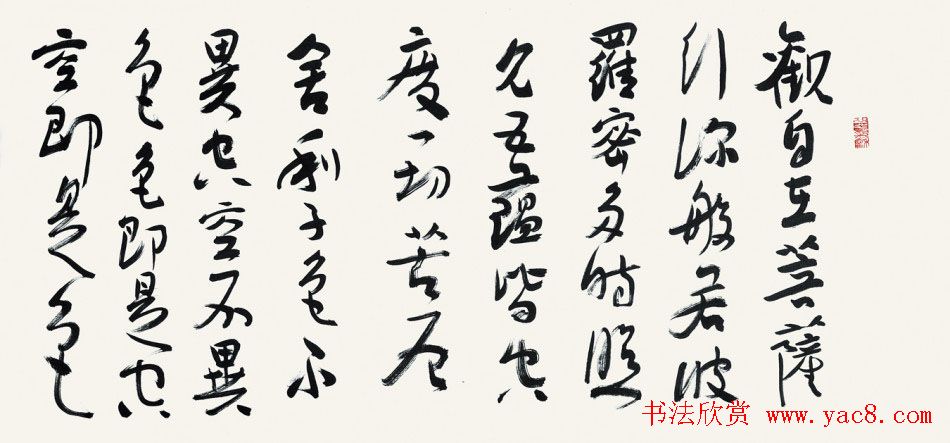 觀自在菩薩
行深般若波
羅密多時照
見五蘊皆空
度一切苦厄
舍利子色不
異空空不異
色色即是空
空即是色
书法欣赏 www.yac8.com